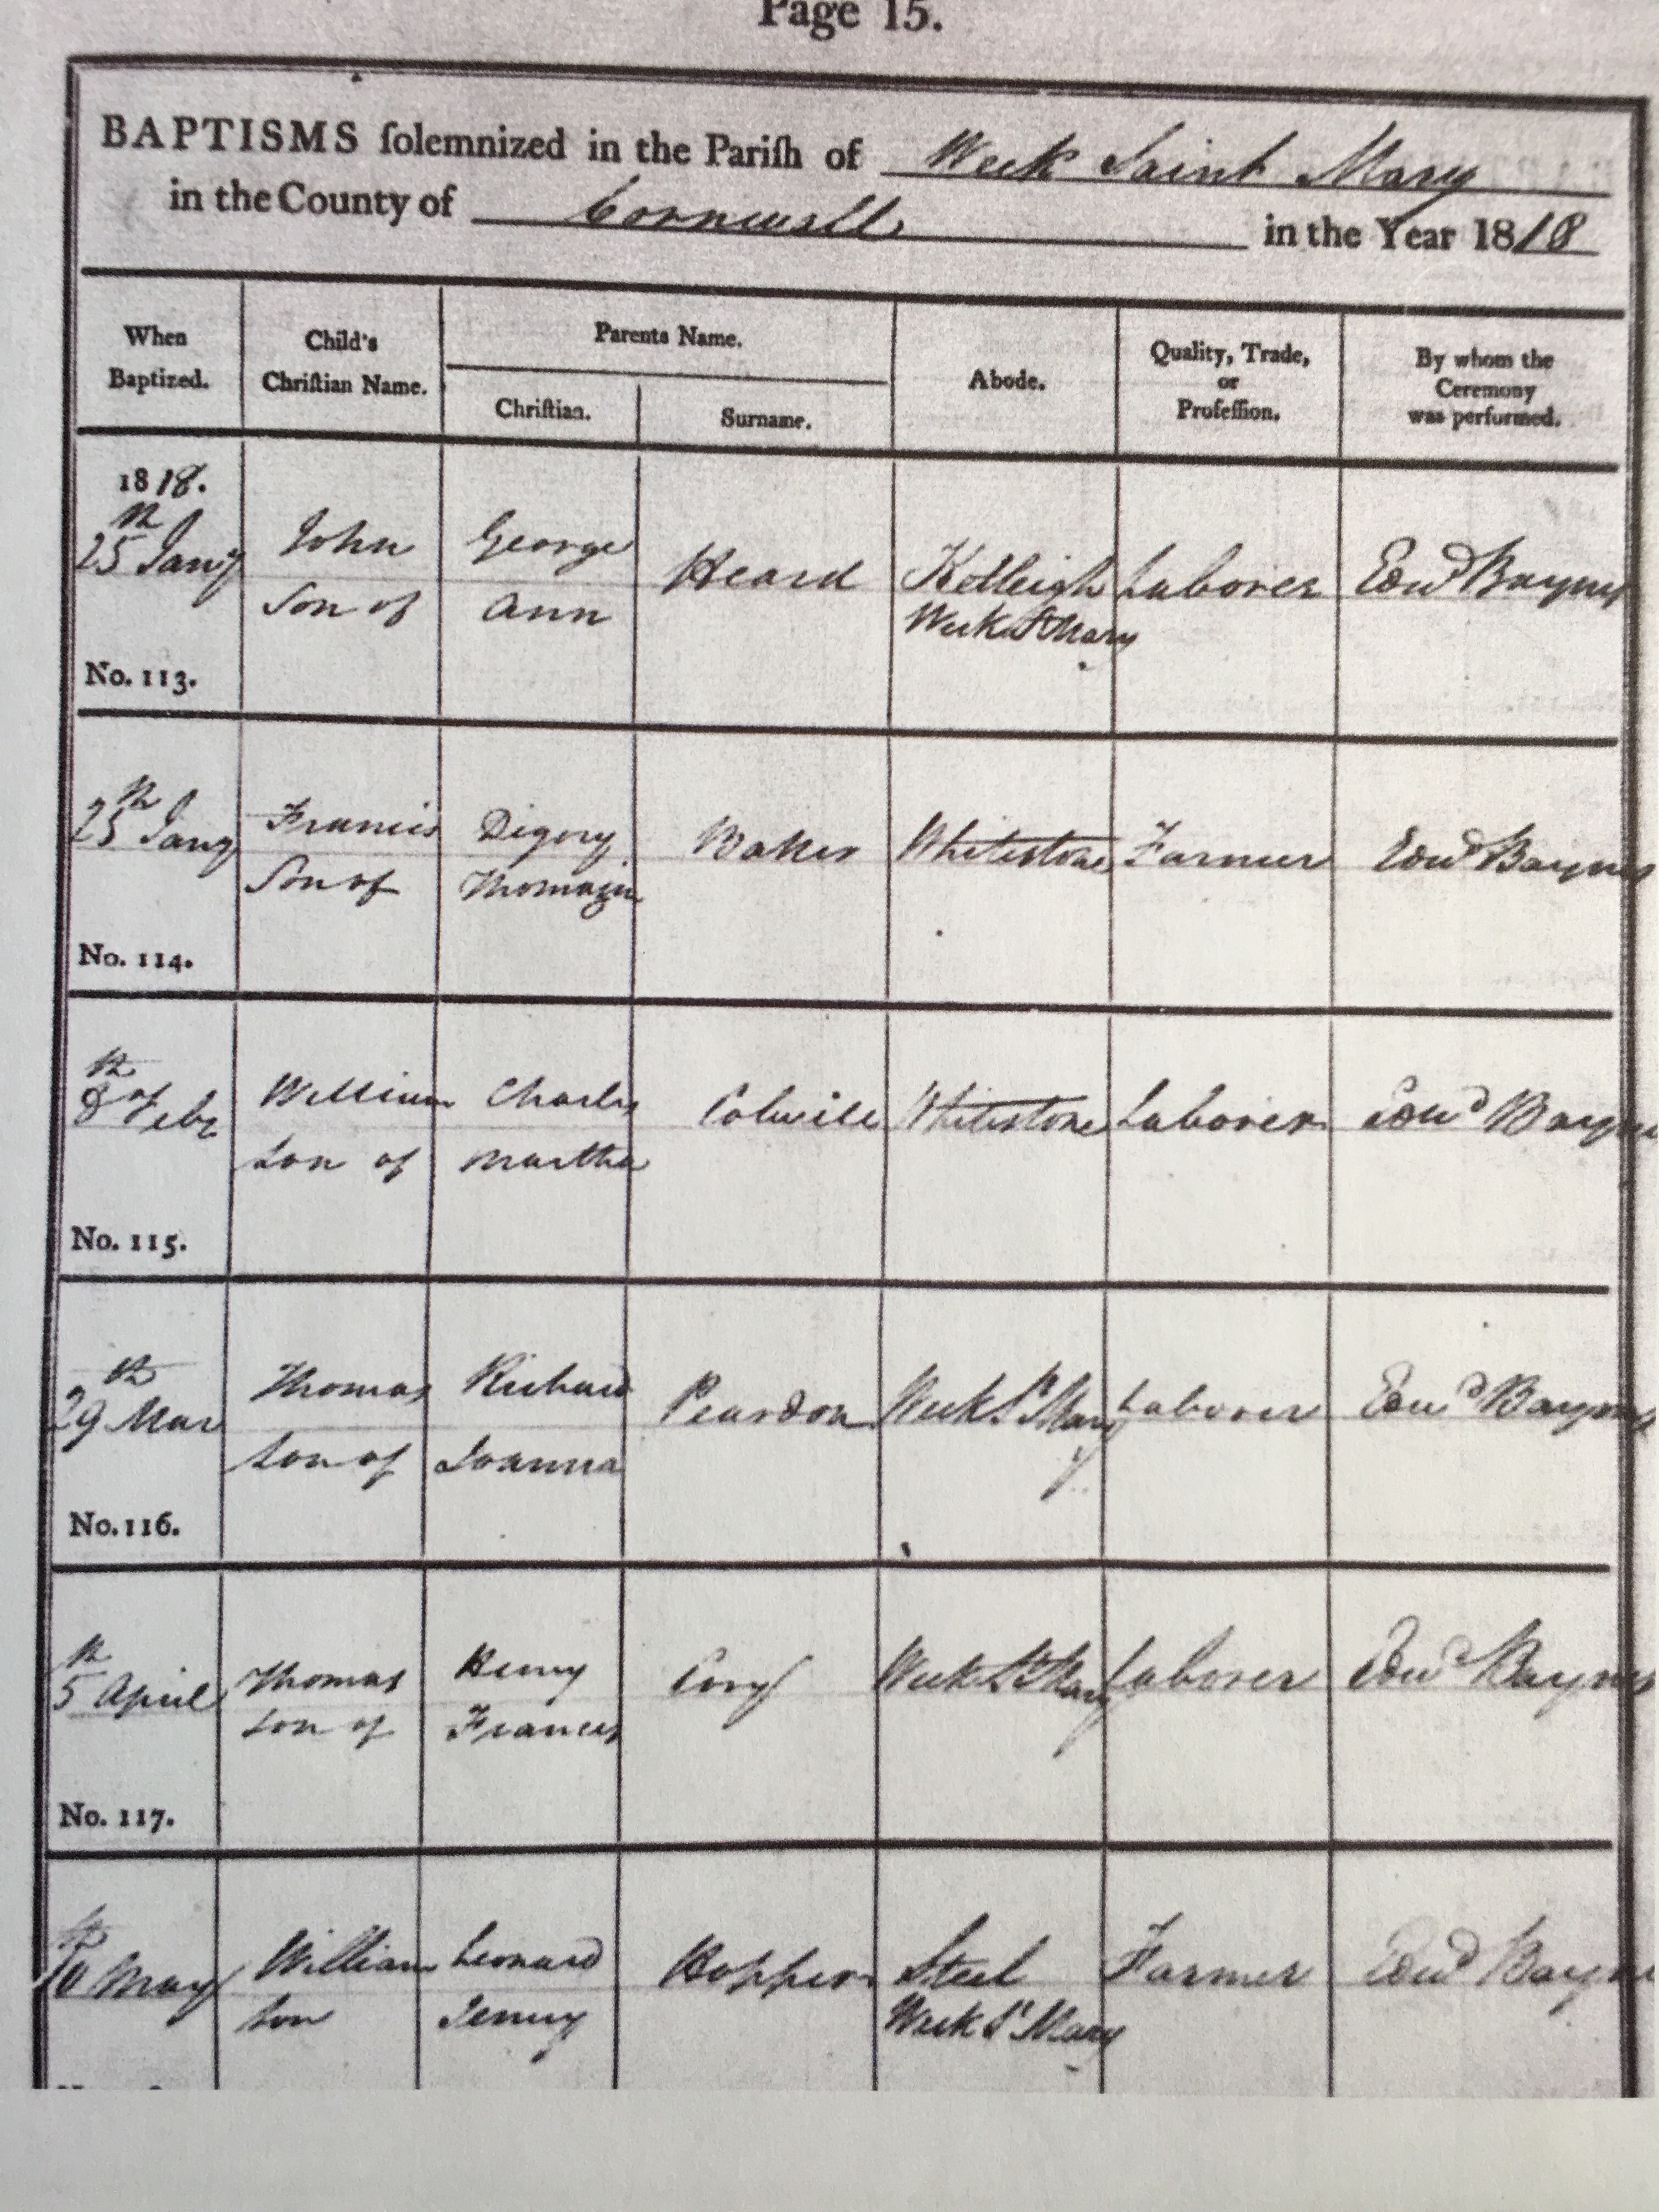 Page 15.
BAPTISMS ſolemnized in the Pariſh of Week Saint Mary
in the County of Cornwall in the Year 1818
When Baptized.
Child's Chriſtian Name.
Parents Name.
Chriſtian.
Surname.
Abode.
Quality, Trade, or Profeſſion.
By whom the Ceremony was performed.
1818.
25th Jany John George Heard Kelleigh Laborer Edwd Baynes
Son of Ann Week St Mary
No. 113.
25th Jany Francis Digory Baker Whitestone Farmer Edwd Baynes
Son of Thomazin
No. 114.
8th of Feby William Charles Colwill Whitestone Laborer Edwd Baynes
Son of Martha
No. 115.
29th Mar Thomas Richard Peardon Week St Mary Laborer Edwd Baynes
Son of Joanna
No. 116.
5th April Thomas Henry Cory Week St Mary Laborer Edwd Baynes
Son of Frances
No. 117.
10th May William Leonard Hopper Steel Farmer Edwd Bayne
Son Jenny Week St Mary